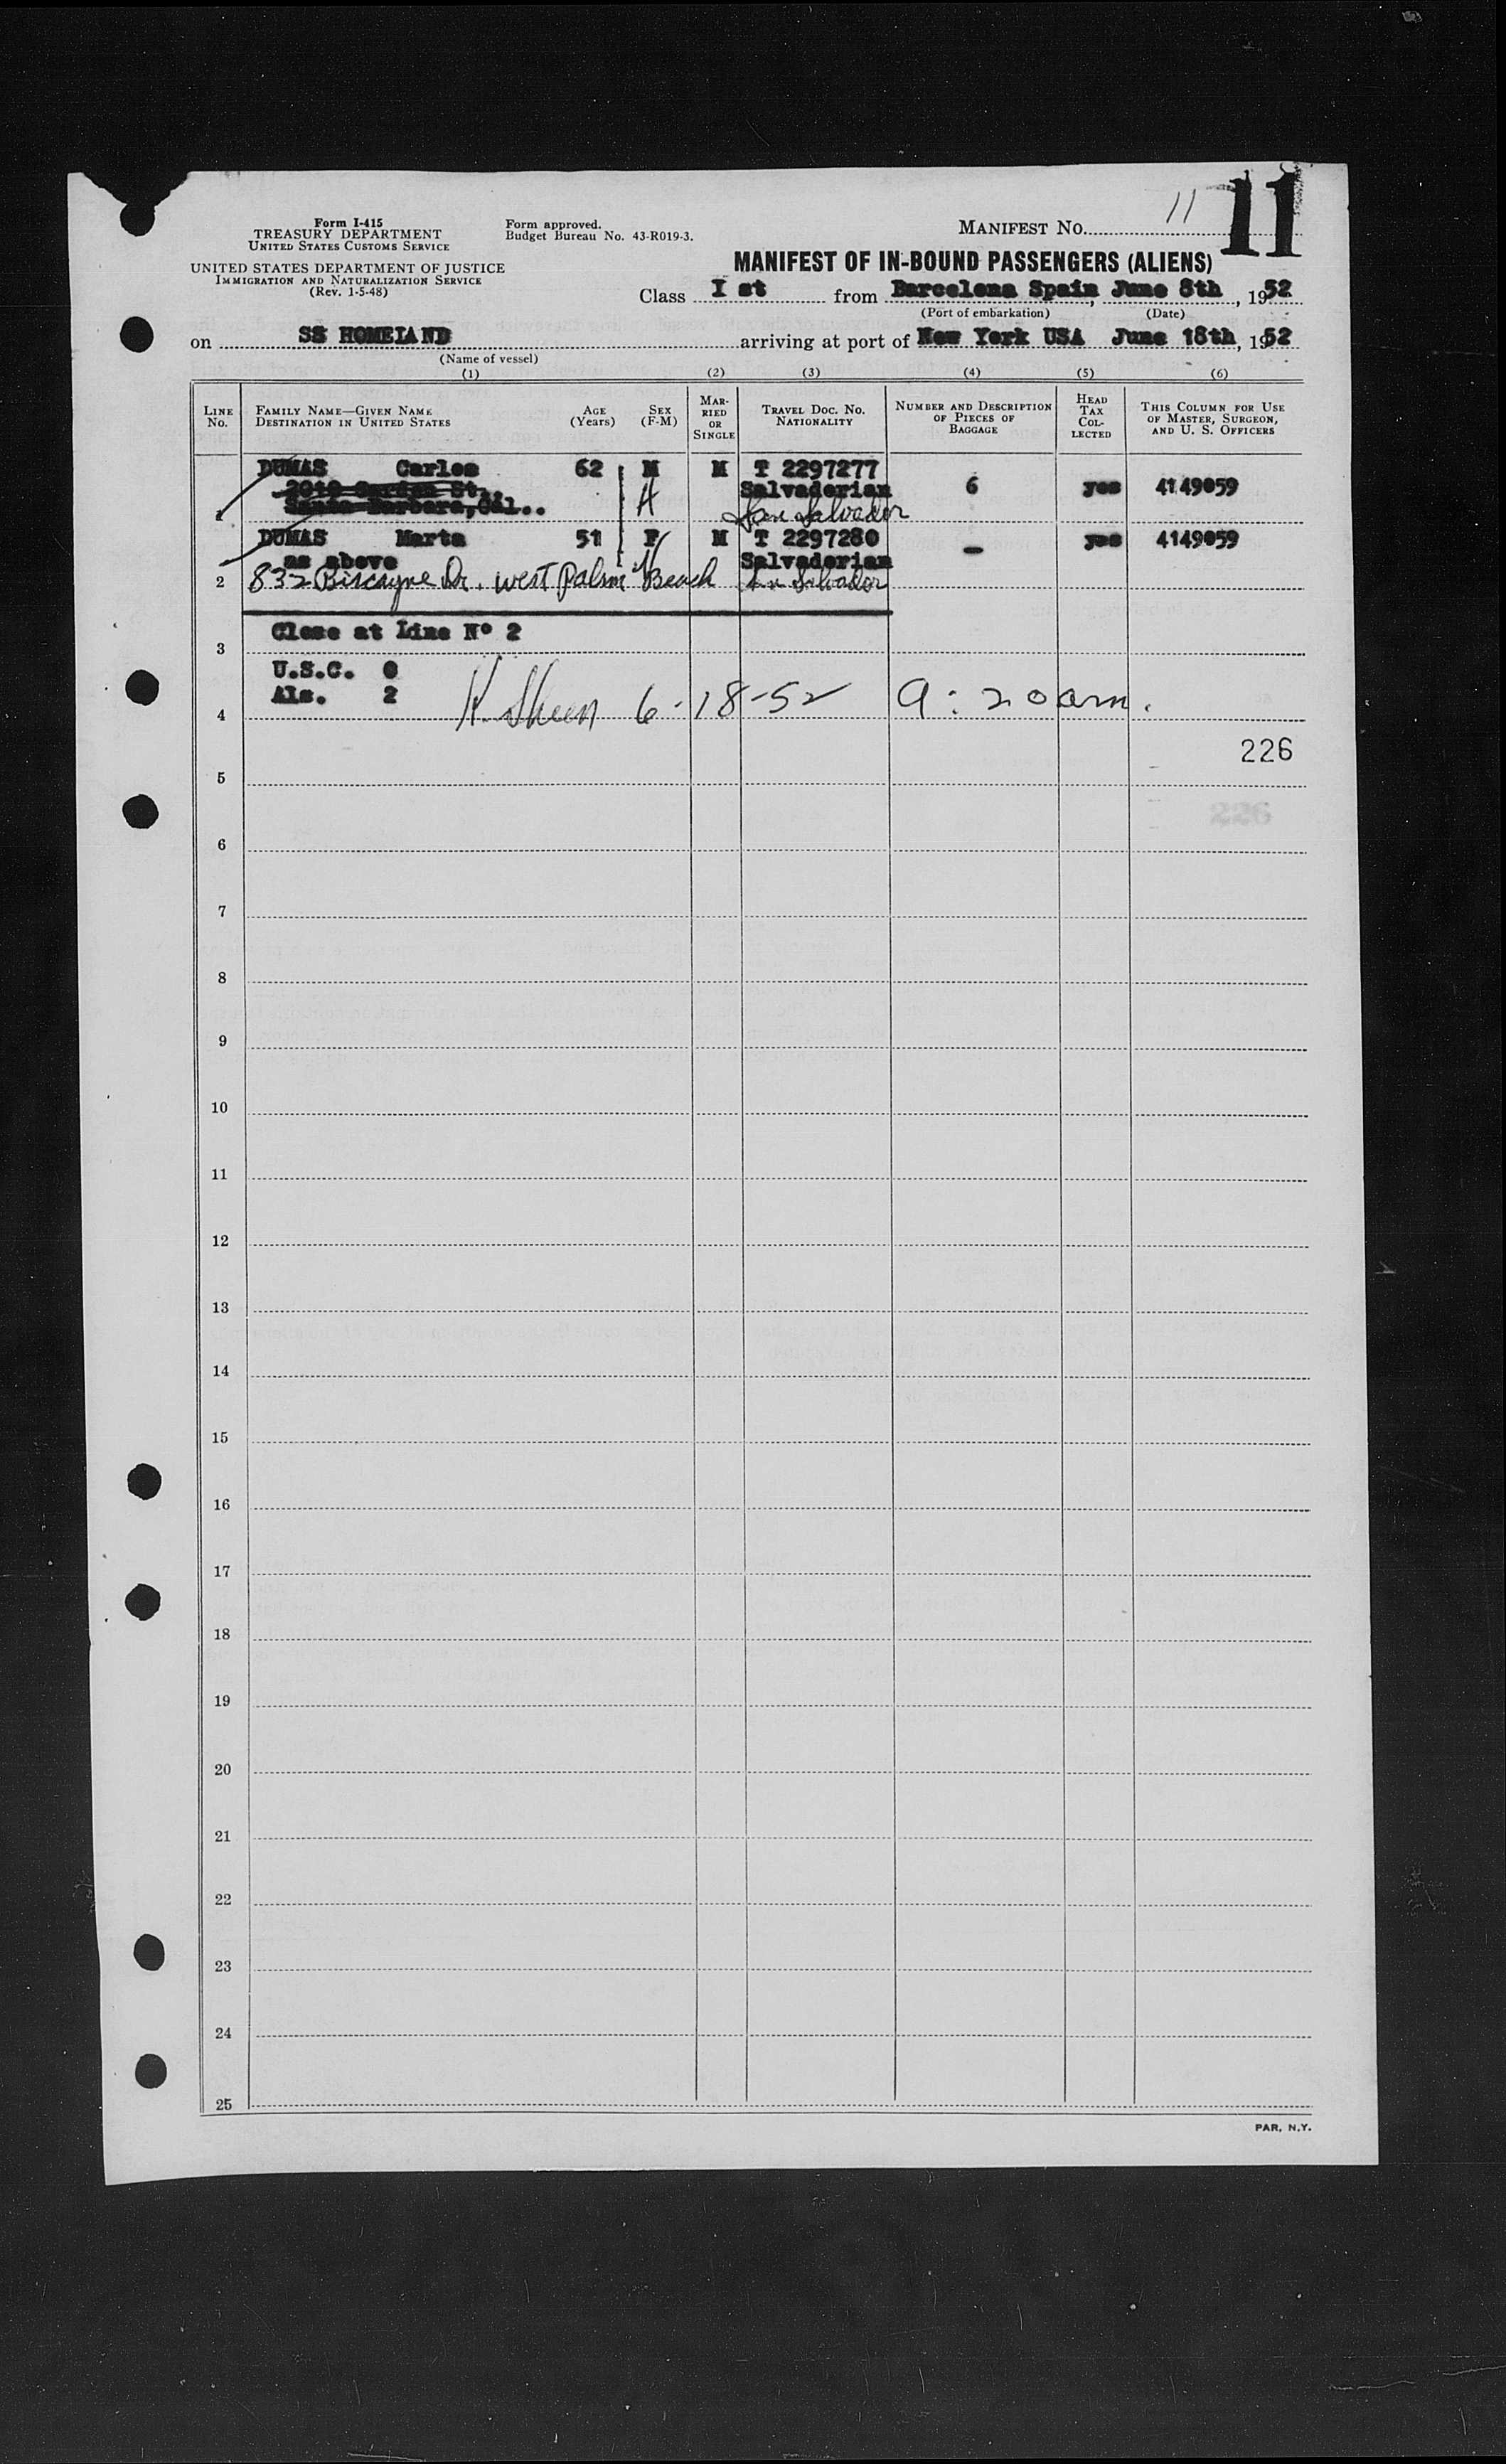 11 11
Form I-415
TREASURY DEPARTMENT
UNITED STATES CUSTOMS SERVICE
UNITED STATES DEPARTMENT OF JUSTICE
IMMIGRATION AND NATURALIZATION SERVICE
(Rev. 1-5-48)
Form approved.
Budget Bureau No. 43-R019-3.
MANIFEST NO.
MANIFEST OF IN-BOUND PASSENGERS (ALIENS)
Class I st from Barcelona Spain, June 8th, 1952
(Port of embarkation) (Date)
on SS HOMELAND arriving at port of New York USA June 18th, 1952
(Name of vessel)
(1) (2) (3) (4) (5) (6)
LINE No. FAMILY NAME—GIVEN NAME DESTINATION IN UNITED STATES AGE (Years) SEX (F-M) MARRIED OR SINGLE TRAVEL DOC. NO. NATIONALITY NUMBER AND DESCRIPTION OF PIECES OF BAGGAGE HEAD TAX COLLECTED THIS COLUMN FOR USE OF MASTER, SURGEON, AND U. S. OFFICERS
DUMAS Carlos 62 M M T 2297277
St. Salvadorian 6 yes 4149059
1 Santa Barbara, Cal.. H San Salvador
DUMAS Marta 51 F M T 2297280 — yes 4149059
as above Salvadorian
2 832 Biscayne Dr. West Palm Beach San Salvador
Close at Line Nº 2
3
U.S.C. 0
Als. 2
4 6-18-52 9:20am.
226
5
6
7
8
9
10
11
12
13
14
15
16
17
18
19
20
21
22
23
24
25
PAR. N.Y.